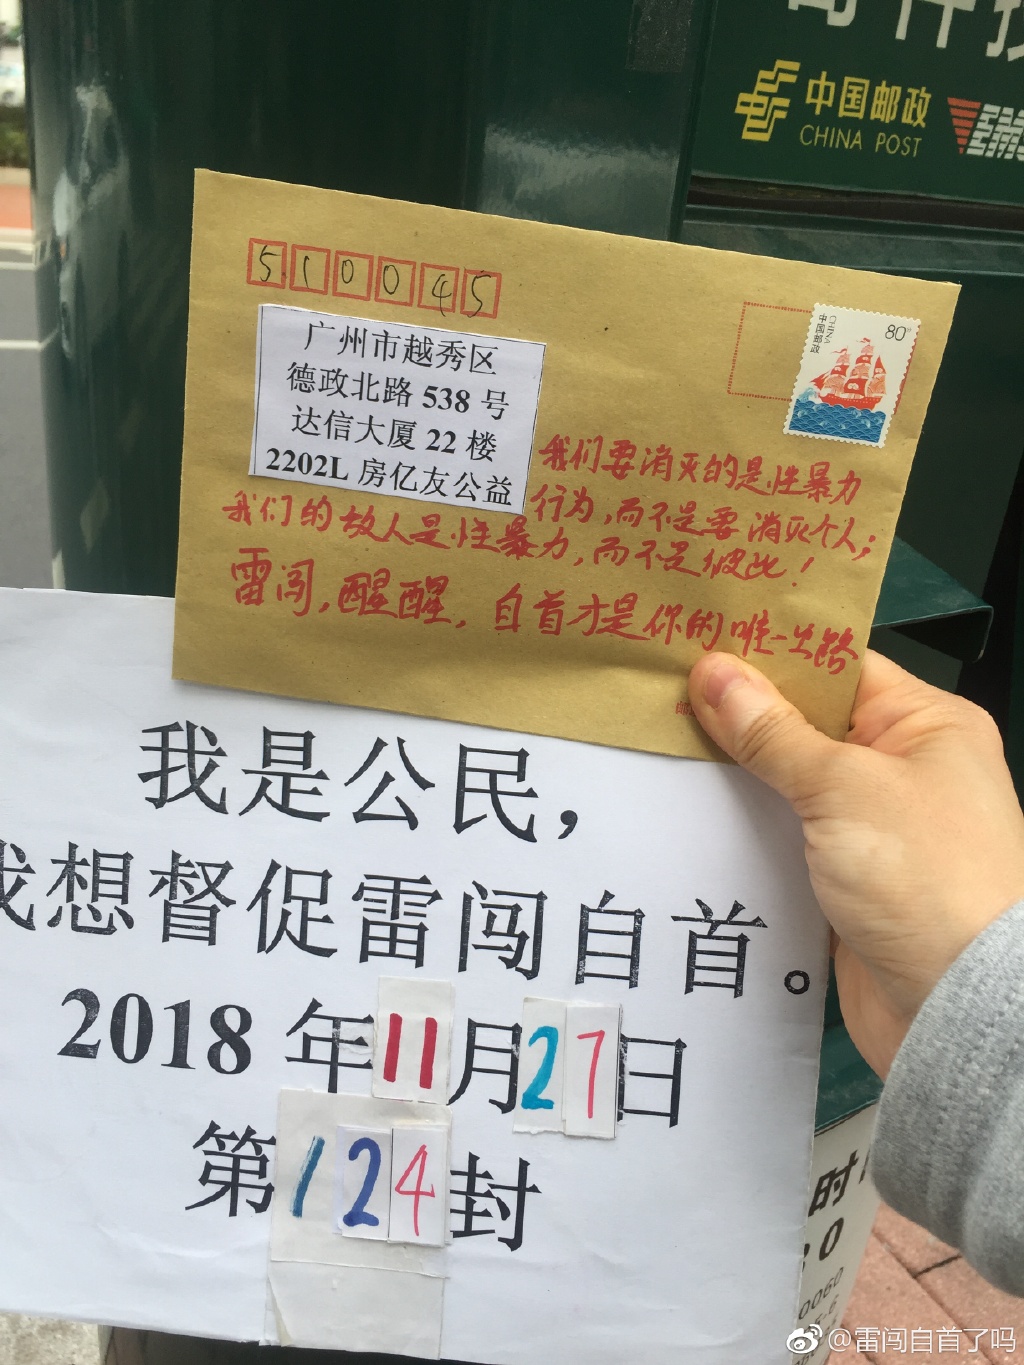 中国邮政
CHINA POST
510045
广州市越秀区
德政北路 538 号
达信大厦 22 楼
2202L 房亿友公益
中国邮政
CHINA
80
我们要消灭的是性暴力
行为，而不是要消灭个人；
我们的敌人是性暴力，而不是彼此！
雷闯，醒醒，自首才是你的唯一出路
我是公民，
我想督促雷闯自首。
2018 年 11 月 27 日
第 124 封
时
0060
@雷闯自首了吗